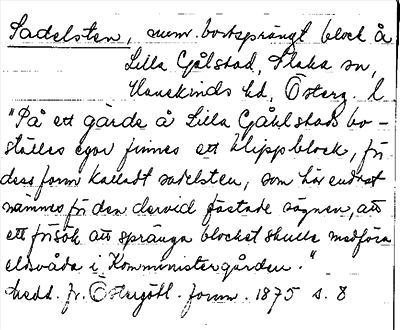 Sadelsten, num. bortsprängt block å
Lilla Gjålstad, Slaka sn,
Hanekinds hd, Österg. l.
"På ett gärde å Lilla Gjåhlstads bo-
ställes egor finnes ett klippblock, för
dess form kalladt sadelsten, som här endast
nämnes för den dervid fästade sägnen, att
ett försök att spränga blocket skulle medföra
eldsvåda i Komministergården."
Medd. fr. Östergötl. fornm. 1875 s. 8